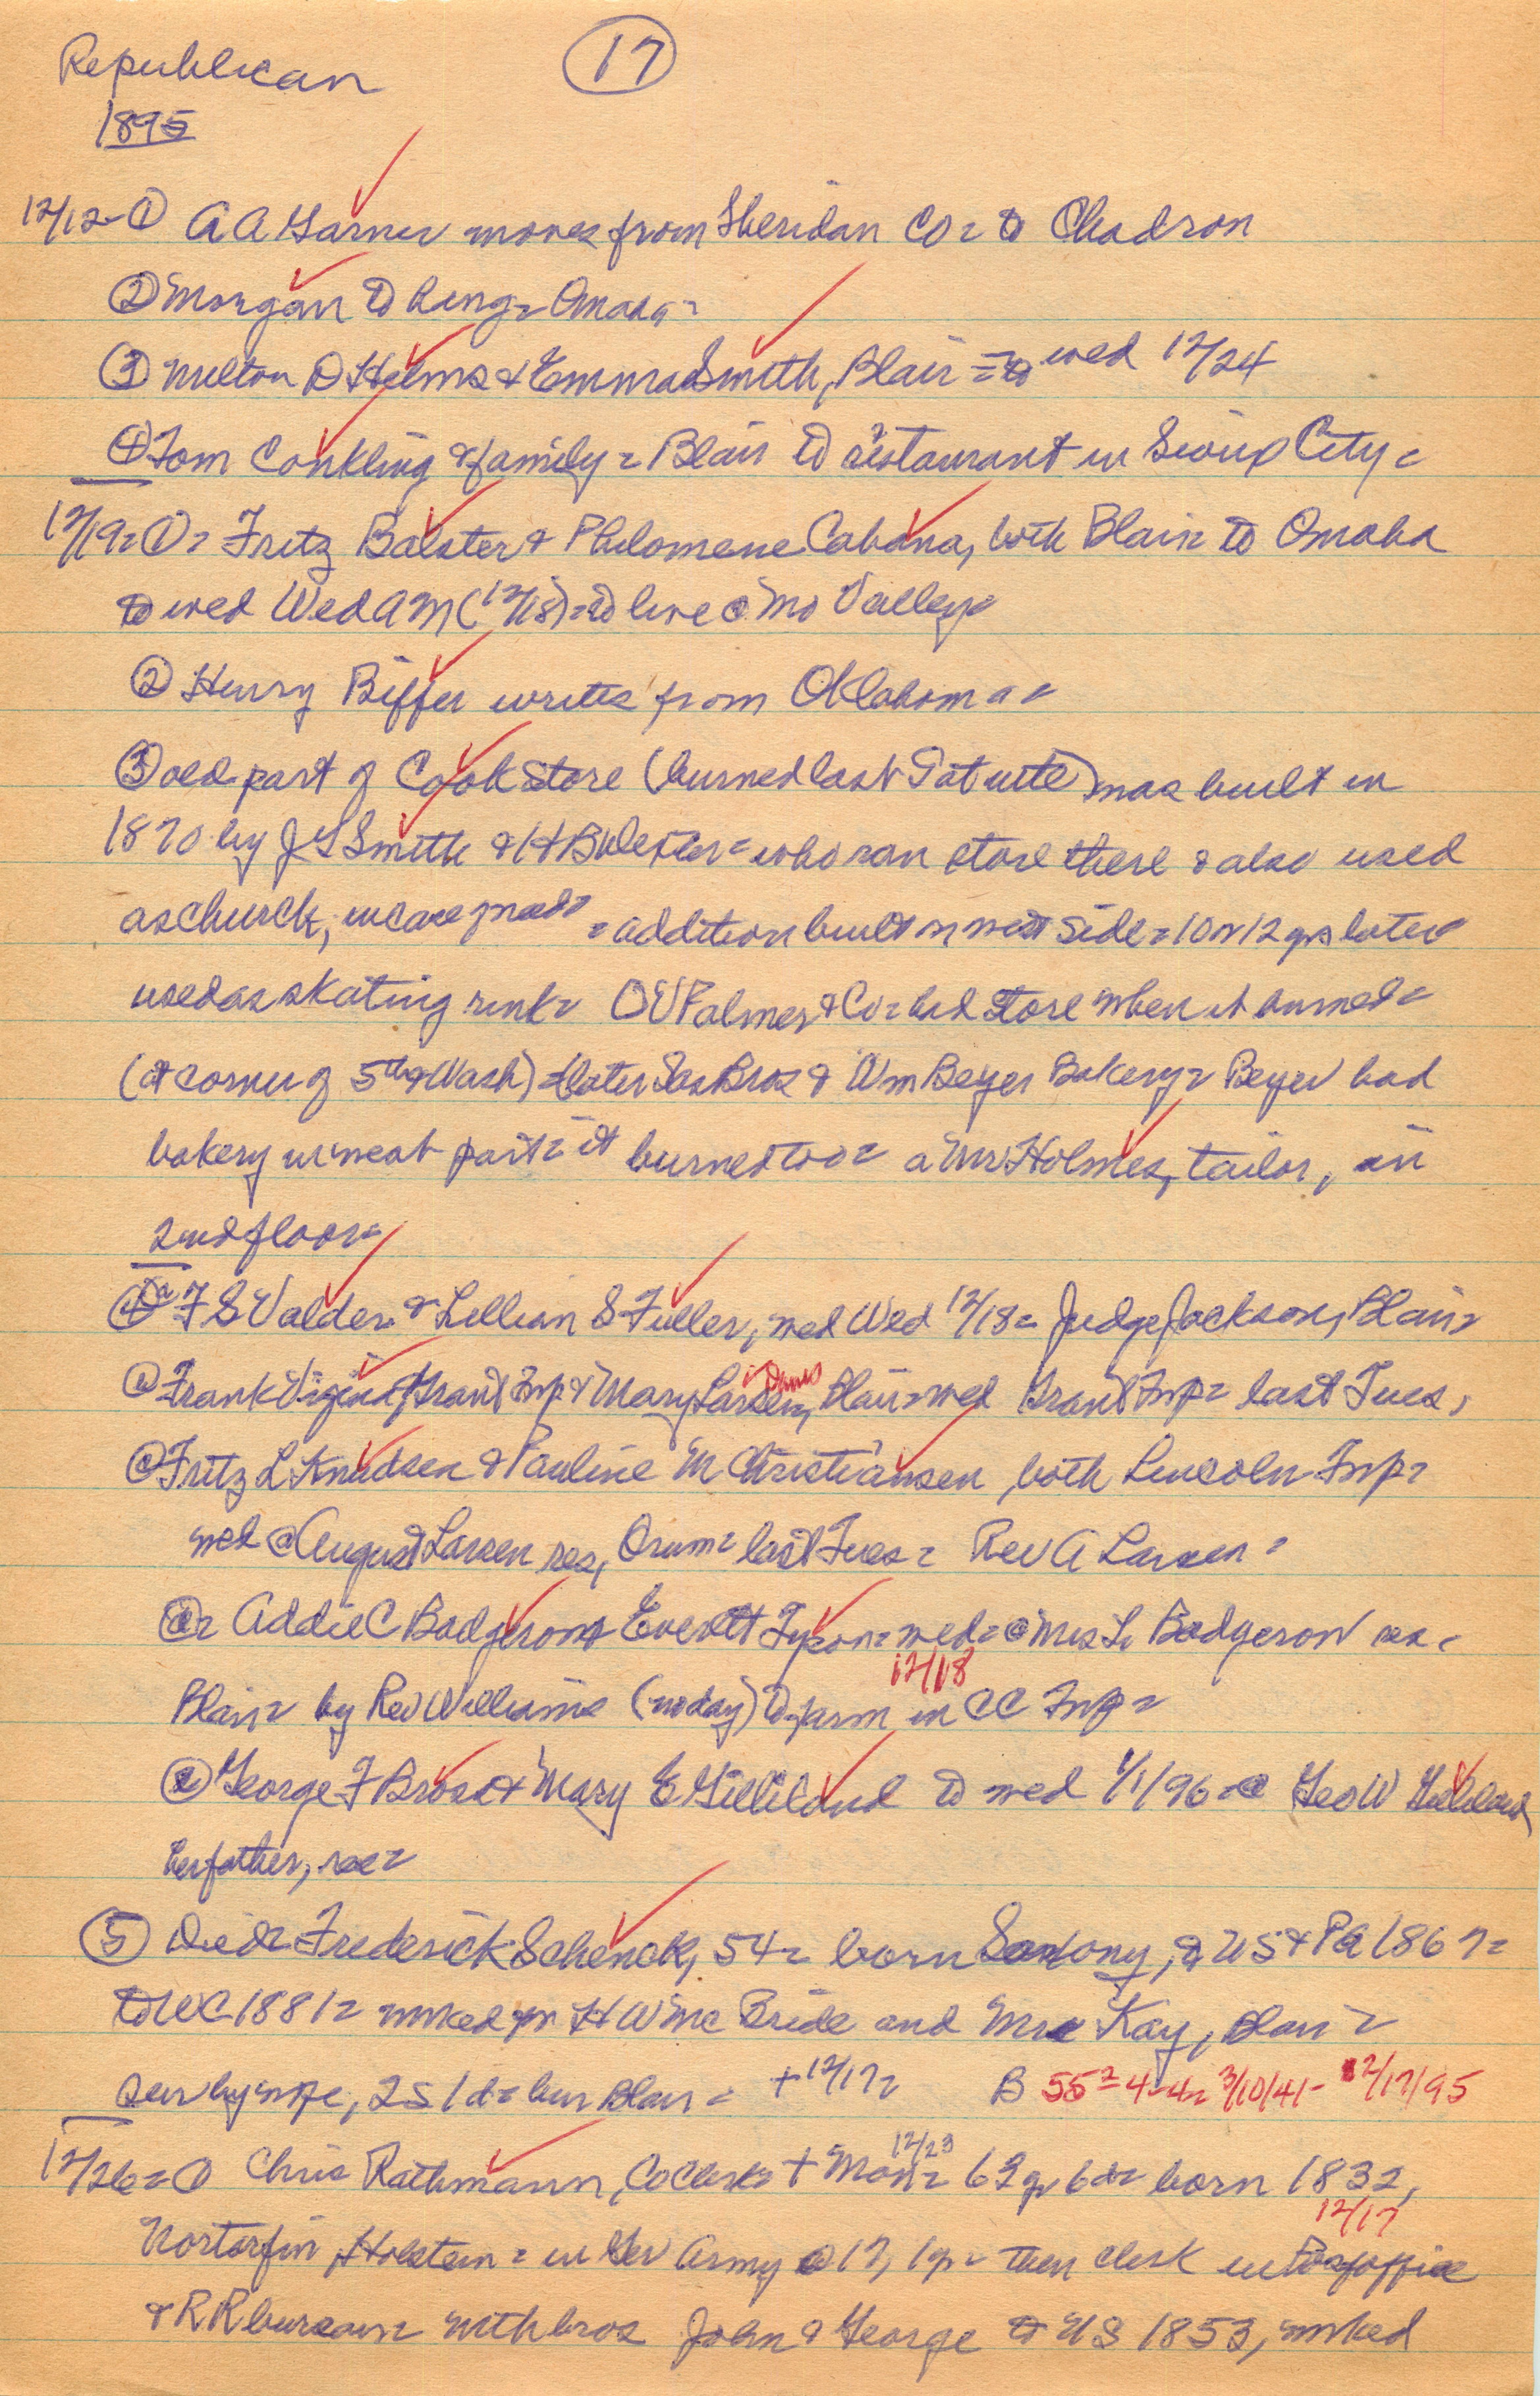 Republican
17
1895
12/12-① A A Garner moves from Sheridan Co = to Chadron
② Morgan to hang = Omaha =
③ Milton D Helms & Emma Smith, Blair = to wed 12/24
④ Tom Conkling & family = Blair to restaurant in Sioux City =
12/19=①= Fritz Balster & Philomene Cabana, both Blair = to Omaha
to wed Wed AM (12/18) = to live @ Mo Valley =
② Henry Biffer writes from Oklahoma =
③ old part of Cook Store (burned last Sat nite) was built in
1870 by J S Smith & H B = who ran store there & also used
as church, = addition built on west side = 10 or 12 yrs later
used as skating rink = O V Palmer & Co = had store when it burned =
(at corner of 5th & Wash) = later Sas Bros & Wm Beyer Bakery = Beyer had
bakery in west part = it burned too = a Mr Holmes, tailor, on
2nd floor =
④ a F S Valder & Lillian S Fuller, wed Wed 12/18 = Judge Jackson, Blair =
@ Frank Grant Twp & Mary Larsen, Blair = wed Grant Twp = last Tues,
@ Fritz L Knudsen & Pauline M Christiansen, both Lincoln Twp =
wed @ August Larsen res, Orum = last Tues = Rev A Larsen =
@= Addie C Badgerow & Everett Tyson = wed = @ Mrs L Badgerow res =
12/18
Blair = by Rev Williams (no day) to farm in CC Twp =
@ George F Brose & Mary E Gilliland to wed 1/1/96 = @ Geo W Gilliland
her father, res =
⑤ Died = Frederick Schenck, 54 = born Saxony, to US & Pa 1867 =
to WC 1881 = worked for H W McBride and Mrs Kay, Blair =
Sur by wife, 2 S 1 d = bur Blair = + 12/17 = B 55 = 4-4 = 3/10/41 - 12/17/95
12/26=① Chris Rathmann, Co Clerk = + Mon = 12/23 63 y 6 d = born 1832,
12/17
Nortorfin, Holstein = in Ger Army @ 17, 1 yr = then clerk in
& R R bureau = with bros John & George to US 1853, worked